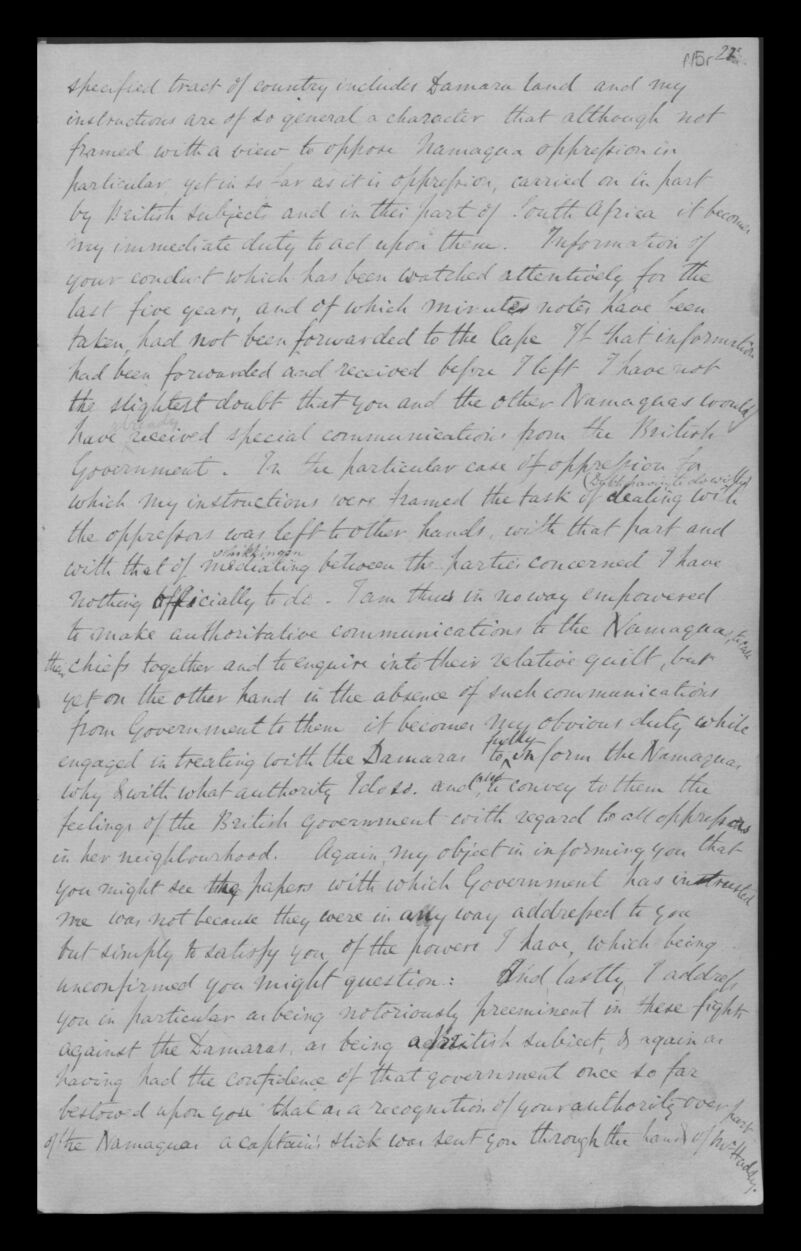 115r 22
specified tract of country includes Damara land and my
instructions are of so general a character that although not
framed with a view to oppose Namaqua oppression in
particular yet in so far as it is oppression, carried on in part
by British subjects and in this part of South Africa it becomes
my immediate duty to act upon them. Information of
your conduct which has been watched attentively for the
last five years, and of which minutes notes have been
taken, had not been forwarded to the Cape If that information
had been forwarded and received before I left I have not
the slightest doubt that you and the other Namaquas would
already
have received special communications from the British
Government. In the particular case of oppression for
which my instructions were framed the task of dealing with
the oppressors was left to other hands, with that part and
with that of mediating between the parties concerned I have
nothing officially to do. I am thus in no way empowered
to make authoritative communications to the Namaquas, to call
their chiefs together and to enquire into their relative guilt, but
yet on the other hand in the absence of such communications
from Government to them it becomes my obvious duty while
fully
engaged in treating with the Damaras to inform the Namaquas
why & with what authority I do so. and also to convey to them the
feelings of the British government with regard to all oppressors
in her neighbourhood. Again, my object in informing you that
you might see the papers with which Government has intrusted
me was not because they were in any way addressed to you
but simply to satisfy you of the powers I have, which being
unconfirmed you might question: And lastly I address
you in particular as being notoriously preeminent in these fights
against the Damaras, as being a British subject, & again as
having had the confidence of that government once so far
bestowed upon you that as a recognition of your authority over part
of the Namaquas a captain's stick was sent you through the hands of Mr